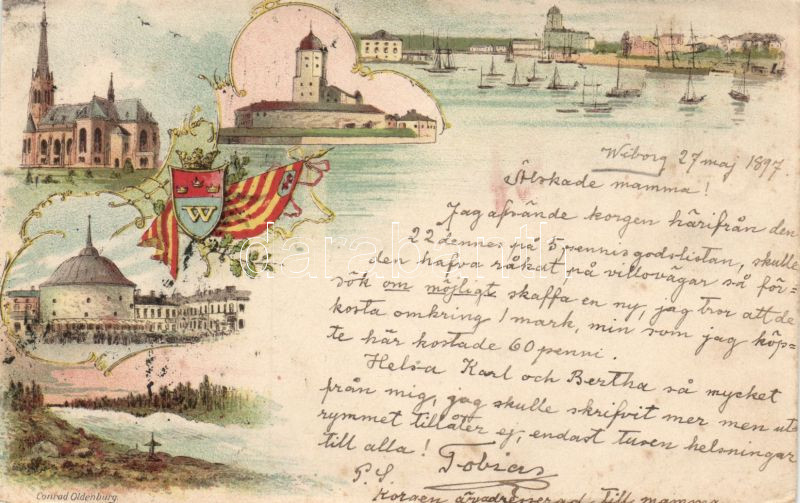 Wiborg 27 maj 1897.
Älskade mamma!
Jag afsände korgen härifrån den
22 dennes på 5 pennisgodslistan, skulle
den hafva råkat på villovägar så för-
sök om möjligt skaffa en ny, jag tror att de
kosta omkring 1 mark, min som jag köp-
te här kostade 60 penni.
Helsa Karl och Bertha så mycket
från mig, jag skulle skrifvit mer men ut-
rymmet tillåter ej, endast tusen helsningar
till alla! Tobias
P.S. Korgen är adresserad till mamma
W
Conrad Oldenburg.
darabanth